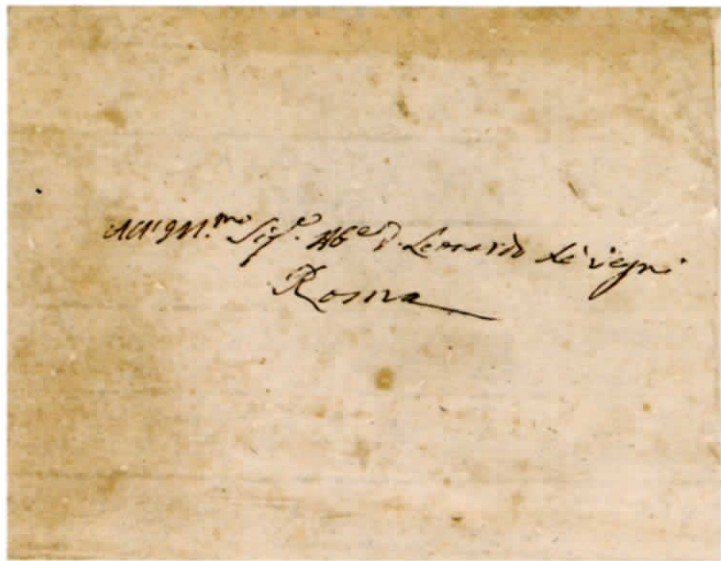 All'Ill.mo Sig.e Ab.e D. Leonardo de Vegni
Roma